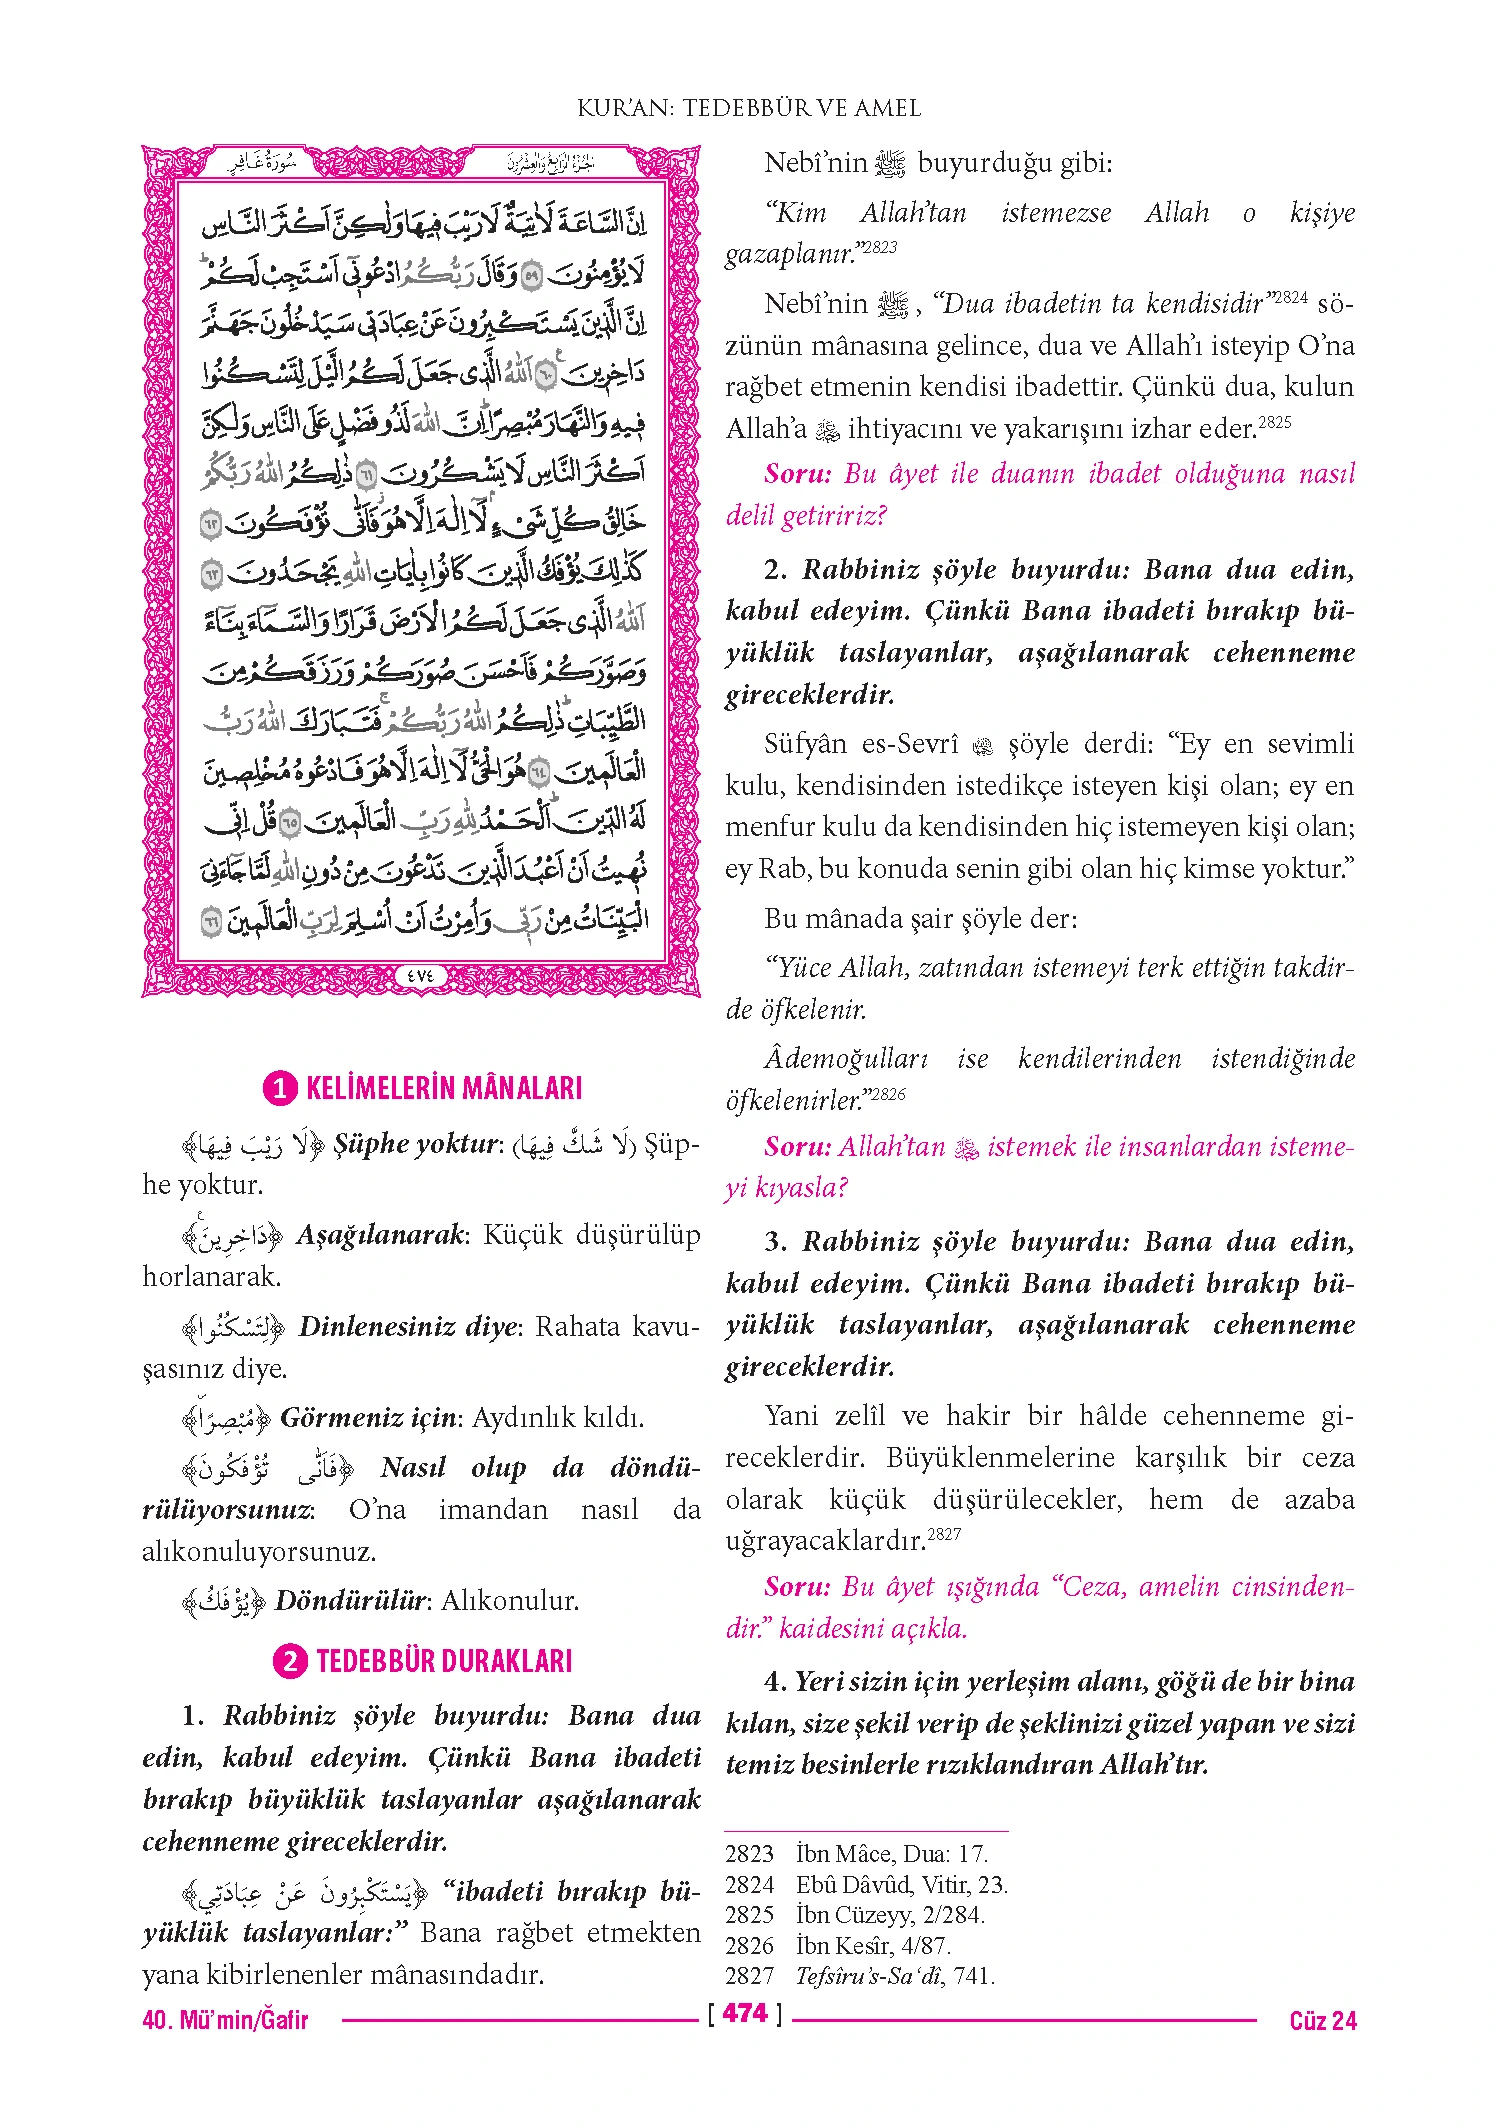 KUR’AN: TEDEBBÜR VE AMEL
سُورَةُ غَافِرٍ
اَلْجُزْءُ الرَّابِعُ وَالْعِشْرُونَ
اِنَّ السَّاعَةَ لَاٰتِيَةٌ لَا رَيْبَ فٖيهَا وَلٰكِنَّ اَكْثَرَ النَّاسِ
لَا يُؤْمِنُونَ ﴿٥٩﴾ وَقَالَ رَبُّكُمُ ادْعُونٖٓي اَسْتَجِبْ لَكُمْؕ
اِنَّ الَّذٖينَ يَسْتَكْبِرُونَ عَنْ عِبَادَتٖي سَيَدْخُلُونَ جَهَنَّمَ
دَاخِرٖينَ ﴿٦٠﴾ اَللّٰهُ الَّذٖي جَعَلَ لَكُمُ الَّيْلَ لِتَسْكُنُوا
فٖيهِ وَالنَّهَارَ مُبْصِرًاؕ اِنَّ اللّٰهَ لَذُو فَضْلٍ عَلَى النَّاسِ وَلٰكِنَّ
اَكْثَرَ النَّاسِ لَا يَشْكُرُونَ ﴿٦١﴾ ذٰلِكُمُ اللّٰهُ رَبُّكُمْ
خَالِقُ كُلِّ شَيْءٍۘ لَٓا اِلٰهَ اِلَّا هُوَؗ فَاَنّٰى تُؤْفَكُونَ ﴿٦٢﴾
كَذٰلِكَ يُؤْفَكُ الَّذٖينَ كَانُوا بِاٰيَاتِ اللّٰهِ يَجْحَدُونَ ﴿٦٣﴾
اَللّٰهُ الَّذٖي جَعَلَ لَكُمُ الْاَرْضَ قَرَارًا وَالسَّمَٓاءَ بِنَٓاءً
وَصَوَّرَكُمْ فَاَحْسَنَ صُوَرَكُمْ وَرَزَقَكُمْ مِنَ
الطَّيِّبَاتِؕ ذٰلِكُمُ اللّٰهُ رَبُّكُمْۚ فَتَبَارَكَ اللّٰهُ رَبُّ
الْعَالَمٖينَ ﴿٦٤﴾ هُوَ الْحَيُّ لَٓا اِلٰهَ اِلَّا هُوَ فَادْعُوهُ مُخْلِصٖينَ
لَهُ الدّٖينَؕ اَلْحَمْدُ لِلّٰهِ رَبِّ الْعَالَمٖينَ ﴿٦٥﴾ قُلْ اِنّٖي
نُهٖيتُ اَنْ اَعْبُدَ الَّذٖينَ تَدْعُونَ مِنْ دُونِ اللّٰهِ لَمَّا جَٓاءَنِيَ
الْبَيِّنَاتُ مِنْ رَبّٖي وَاُمِرْتُ اَنْ اُسْلِمَ لِرَبِّ الْعَالَمٖينَ ﴿٦٦﴾
٤٧٤
1 KELİMELERİN MÂNALARI
﴿لَا رَيْبَ فِيهَا﴾ Şüphe yoktur: (لَا شَكَّ فِيهَا) Şüp-
he yoktur.
﴿دَاخِرِينَ﴾ Aşağılanarak: Küçük düşürülüp
horlanarak.
﴿لِتَسْكُنُوا﴾ Dinlenesiniz diye: Rahata kavu-
şasınız diye.
﴿مُبْصِرًا﴾ Görmeniz için: Aydınlık kıldı.
﴿فَاَنّٰى تُؤْفَكُونَ﴾ Nasıl olup da döndü-
rülüyorsunuz: O’na imandan nasıl da
alıkonuluyorsunuz.
﴿يُؤْفَكُ﴾ Döndürülür: Alıkonulur.
2 TEDEBBÜR DURAKLARI
1. Rabbiniz şöyle buyurdu: Bana dua
edin, kabul edeyim. Çünkü Bana ibadeti
bırakıp büyüklük taslayanlar aşağılanarak
cehenneme gireceklerdir.
﴿يَسْتَكْبِرُونَ عَنْ عِبَادَتِي﴾ “ibadeti bırakıp bü-
yüklük taslayanlar:” Bana rağbet etmekten
yana kibirlenenler mânasındadır.
Nebî’nin ﷺ buyurduğu gibi:
“Kim Allah’tan istemezse Allah o kişiye
gazaplanır.”2823
Nebî’nin ﷺ, “Dua ibadetin ta kendisidir”2824 sö-
zünün mânasına gelince, dua ve Allah’ı isteyip O’na
rağbet etmenin kendisi ibadettir. Çünkü dua, kulun
Allah’a ﷻ ihtiyacını ve yakarışını izhar eder.2825
Soru: Bu âyet ile duanın ibadet olduğuna nasıl
delil getiririz?
2. Rabbiniz şöyle buyurdu: Bana dua edin,
kabul edeyim. Çünkü Bana ibadeti bırakıp bü-
yüklük taslayanlar, aşağılanarak cehenneme
gireceklerdir.
Süfyân es-Sevrî şöyle derdi: “Ey en sevimli
kulu, kendisinden istedikçe isteyen kişi olan; ey en
menfur kulu da kendisinden hiç istemeyen kişi olan;
ey Rab, bu konuda senin gibi olan hiç kimse yoktur.”
Bu mânada şair şöyle der:
“Yüce Allah, zatından istemeyi terk ettiğin takdir-
de öfkelenir.
Âdemoğulları ise kendilerinden istendiğinde
öfkelenirler.”2826
Soru: Allah’tan ﷻ istemek ile insanlardan isteme-
yi kıyasla?
3. Rabbiniz şöyle buyurdu: Bana dua edin,
kabul edeyim. Çünkü Bana ibadeti bırakıp bü-
yüklük taslayanlar, aşağılanarak cehenneme
gireceklerdir.
Yani zelîl ve hakir bir hâlde cehenneme gi-
receklerdir. Büyüklenmelerine karşılık bir ceza
olarak küçük düşürülecekler, hem de azaba
uğrayacaklardır.2827
Soru: Bu âyet ışığında “Ceza, amelin cinsinden-
dir.” kaidesini açıkla.
4. Yeri sizin için yerleşim alanı, göğü de bir bina
kılan, size şekil verip de şeklinizi güzel yapan ve sizi
temiz besinlerle rızıklandıran Allah’tır.
2823 İbn Mâce, Dua: 17.
2824 Ebû Dâvûd, Vitir, 23.
2825 İbn Cüzeyy, 2/284.
2826 İbn Kesîr, 4/87.
2827 Tefsîru’s-Sa‘dî, 741.
40. Mü’min/Ğafir
[ 474 ]
Cüz 24